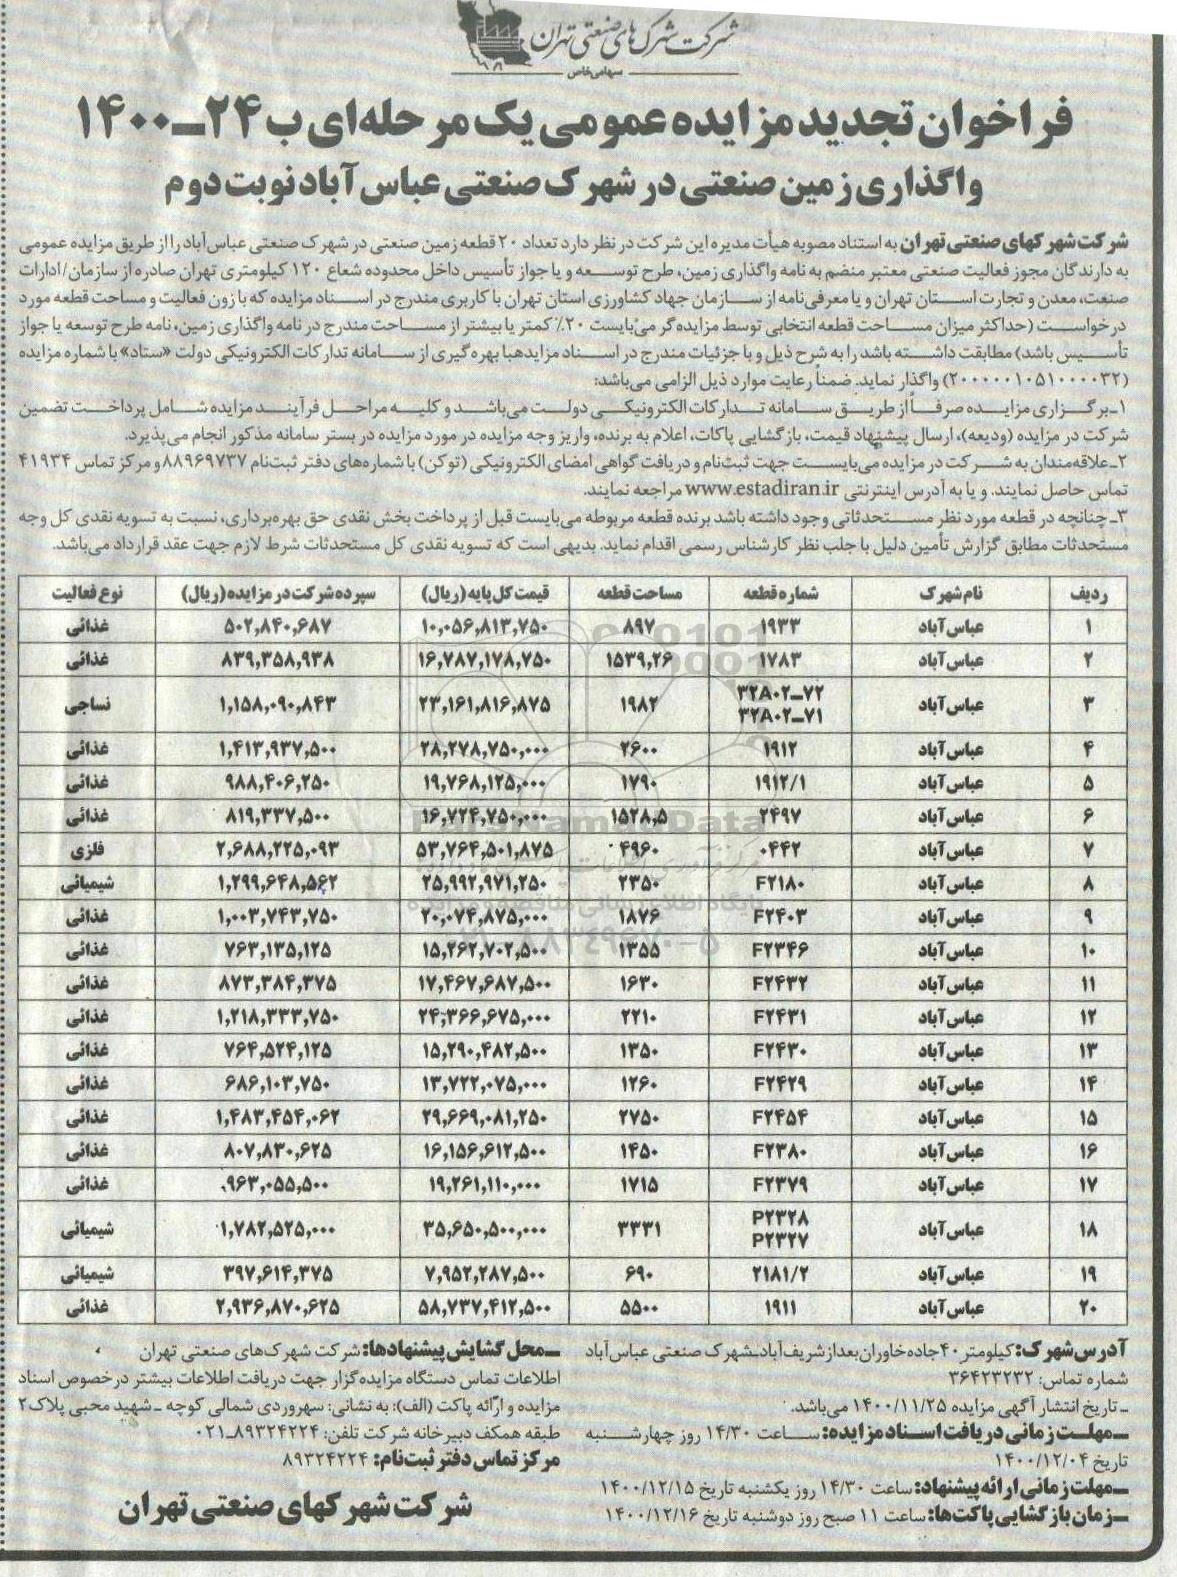 شرکت شهرک‌های صنعتی تهران
سهامی خاص
فراخوان تجدید مزایده عمومی یک مرحله‌ای ب ۲۴ـ۱۴۰۰
واگذاری زمین صنعتی در شهرک صنعتی عباس آباد نوبت دوم
شرکت شهرکهای صنعتی تهران به استناد مصوبه هیأت مدیره این شرکت در نظر دارد تعداد ۲۰ قطعه زمین صنعتی در شهرک صنعتی عباس‌آباد را از طریق مزایده عمومی
به دارندگان مجوز فعالیت صنعتی معتبر منضم به نامه واگذاری زمین، طرح توسعه و یا جواز تأسیس داخل محدوده شعاع ۱۲۰ کیلومتری تهران صادره از سازمان/ادارات
صنعت، معدن و تجارت استان تهران و یا معرفی‌نامه از سازمان جهاد کشاورزی استان تهران با کاربری مندرج در اسناد مزایده که با زون فعالیت و مساحت قطعه مورد
درخواست (حداکثر میزان مساحت قطعه انتخابی توسط مزایده‌گر می‌بایست ۲۰٪ کمتر یا بیشتر از مساحت مندرج در نامه واگذاری زمین، نامه طرح توسعه یا جواز
تأسیس باشد) مطابقت داشته باشد را به شرح ذیل و با جزئیات مندرج در اسناد مزایدهبا بهره‌گیری از سامانه تدارکات الکترونیکی دولت «ستاد» با شماره مزایده
(۲۰۰۰۰۰۱۰۵۱۰۰۰۰۳۲) واگذار نماید. ضمناً رعایت موارد ذیل الزامی می‌باشد:
۱ـ برگزاری مزایده صرفاً از طریق سامانه تدارکات الکترونیکی دولت می‌باشد و کلیه مراحل فرآیند مزایده شامل پرداخت تضمین
شرکت در مزایده (ودیعه)، ارسال پیشنهاد قیمت، بازگشایی پاکات، اعلام به برنده، واریز وجه مزایده در مورد مزایده در بستر سامانه مذکور انجام می‌پذیرد.
۲ـ علاقه‌مندان به شرکت در مزایده می‌بایست جهت ثبت‌نام و دریافت گواهی امضای الکترونیکی (توکن) با شماره‌های دفتر ثبت‌نام ۸۸۹۶۹۷۳۷ و مرکز تماس ۴۱۹۳۴
تماس حاصل نمایند. و یا به آدرس اینترنتی www.estadiran.ir مراجعه نمایند.
۳ـ چنانچه در قطعه مورد نظر مستحدثاتی وجود داشته باشد برنده قطعه مربوطه می‌بایست قبل از پرداخت بخش نقدی حق بهره‌برداری، نسبت به تسویه نقدی کل وجه
مستحدثات مطابق گزارش تأمین دلیل با جلب نظر کارشناس رسمی اقدام نماید. بدیهی است که تسویه نقدی کل مستحدثات شرط لازم جهت عقد قرارداد می‌باشد.
ردیف نام شهرک شماره قطعه مساحت قطعه قیمت کل پایه (ریال) سپرده شرکت در مزایده (ریال) نوع فعالیت
۱ عباس‌آباد ۱۹۳۳ ۸۹۷ ۱۰,۰۵۶,۸۱۳,۷۵۰ ۵۰۲,۸۴۰,۶۸۷ غذائی
۲ عباس‌آباد ۱۷۸۳ ۱۵۳۹,۲۶ ۱۶,۷۸۷,۱۷۸,۷۵۰ ۸۳۹,۳۵۸,۹۳۸ غذائی
۳ عباس‌آباد ۳۲A۰۲ـ۷۲ ۳۲A۰۲ـ۷۱ ۱۹۸۲ ۲۳,۱۶۱,۸۱۶,۸۷۵ ۱,۱۵۸,۰۹۰,۸۴۳ نساجی
۴ عباس‌آباد ۱۹۱۲ ۲۶۰۰ ۲۸,۲۷۸,۷۵۰,۰۰۰ ۱,۴۱۳,۹۳۷,۵۰۰ غذائی
۵ عباس‌آباد ۱۹۱۲/۱ ۱۷۹۰ ۱۹,۷۶۸,۱۲۵,۰۰۰ ۹۸۸,۴۰۶,۲۵۰ غذائی
۶ عباس‌آباد ۲۴۹۷ ۱۵۲۸,۵ ۱۶,۷۲۴,۷۵۰,۰۰۰ ۸۱۹,۳۳۷,۵۰۰ غذائی
۷ عباس‌آباد ۰۴۴۲ ۴۹۶۰ ۵۳,۷۶۴,۵۰۱,۸۷۵ ۲,۶۸۸,۲۲۵,۰۹۳ فلزی
۸ عباس‌آباد F۲۱۸۰ ۲۳۵۰ ۲۵,۹۹۲,۹۷۱,۲۵۰ ۱,۲۹۹,۶۴۸,۵۶۲ شیمیائی
۹ عباس‌آباد F۲۴۰۳ ۱۸۷۶ ۲۰,۰۷۴,۸۷۵,۰۰۰ ۱,۰۰۳,۷۴۳,۷۵۰ غذائی
۱۰ عباس‌آباد F۲۳۴۶ ۱۳۵۵ ۱۵,۲۶۲,۷۰۲,۵۰۰ ۷۶۳,۱۳۵,۱۲۵ غذائی
۱۱ عباس‌آباد F۲۴۳۲ ۱۶۳۰ ۱۷,۴۶۷,۶۸۷,۵۰۰ ۸۷۳,۳۸۴,۳۷۵ غذائی
۱۲ عباس‌آباد F۲۴۳۱ ۲۲۱۰ ۲۴,۳۶۶,۶۷۵,۰۰۰ ۱,۲۱۸,۳۳۳,۷۵۰ غذائی
۱۳ عباس‌آباد F۲۴۳۰ ۱۳۵۰ ۱۵,۲۹۰,۴۸۲,۵۰۰ ۷۶۴,۵۲۴,۱۲۵ غذائی
۱۴ عباس‌آباد F۲۴۲۹ ۱۲۶۰ ۱۳,۷۲۲,۰۷۵,۰۰۰ ۶۸۶,۱۰۳,۷۵۰ غذائی
۱۵ عباس‌آباد F۲۴۵۴ ۲۷۵۰ ۲۹,۶۶۹,۰۸۱,۲۵۰ ۱,۴۸۳,۴۵۴,۰۶۲ غذائی
۱۶ عباس‌آباد F۲۳۸۰ ۱۴۵۰ ۱۶,۱۵۶,۶۱۲,۵۰۰ ۸۰۷,۸۳۰,۶۲۵ غذائی
۱۷ عباس‌آباد F۲۳۷۹ ۱۷۱۵ ۱۹,۲۶۱,۱۱۰,۰۰۰ ۹۶۳,۰۵۵,۵۰۰ غذائی
۱۸ عباس‌آباد P۲۳۲۸ P۲۳۲۷ ۳۳۳۱ ۳۵,۶۵۰,۵۰۰,۰۰۰ ۱,۷۸۲,۵۲۵,۰۰۰ شیمیائی
۱۹ عباس‌آباد ۲۱۸۱/۲ ۶۹۰ ۷,۹۵۲,۲۸۷,۵۰۰ ۳۹۷,۶۱۴,۳۷۵ شیمیائی
۲۰ عباس‌آباد ۱۹۱۱ ۵۵۰۰ ۵۸,۷۳۷,۴۱۲,۵۰۰ ۲,۹۳۶,۸۷۰,۶۲۵ غذائی
آدرس شهرک: کیلومتر ۴۰ جاده خاوران بعد از شریف‌آباد شهرک صنعتی عباس‌آباد
شماره تماس: ۳۶۴۲۳۲۳۲
ـ تاریخ انتشار آگهی مزایده ۱۴۰۰/۱۱/۲۵ می‌باشد.
ـ مهلت زمانی دریافت اسناد مزایده: ساعت ۱۴/۳۰ روز چهارشنبه
تاریخ ۱۴۰۰/۱۲/۰۴
ـ مهلت زمانی ارائه پیشنهاد: ساعت ۱۴/۳۰ روز یکشنبه تاریخ ۱۴۰۰/۱۲/۱۵
ـ زمان بازگشایی پاکت‌ها: ساعت ۱۱ صبح روز دوشنبه تاریخ ۱۴۰۰/۱۲/۱۶
ـ محل گشایش پیشنهادها: شرکت شهرک‌های صنعتی تهران
اطلاعات تماس دستگاه مزایده‌گزار جهت دریافت اطلاعات بیشتر درخصوص اسناد
مزایده و ارائه پاکت (الف): به نشانی: سهروردی شمالی کوچه ـ شهید محبی پلاک ۲
طبقه همکف دبیرخانه شرکت تلفن: ۸۹۳۲۴۲۲۴ـ۰۲۱
مرکز تماس دفتر ثبت‌نام: ۸۹۳۲۴۲۲۴
شرکت شهرکهای صنعتی تهران